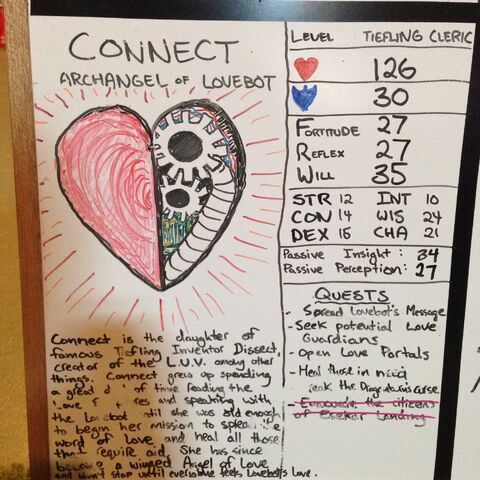 CONNECT
ARCHANGEL OF LOVEBOT
Connect is the daughter of
famous Tiefling Inventor Dissect,
creator of the L.U.V. among other
things. Connect grew up spending
a great of time reading the
and speaking with
the Lovebot she was old enough
to begin her mission to
word of Love and heal all those
require aid. She has since
a winged Angel of Love
and won't stop until everyone feels Lovebot's Love.
LEVEL TIEFLING CLERIC
126
30
FORTITUDE 27
REFLEX 27
WILL 35
STR 12 INT 10
CON 14 WIS 24
DEX 15 CHA 21
Passive Insight: 34
Passive Perception: 27
QUESTS
- Spread Lovebot's Message
- Seek potential Love
Guardians
- Open Love Portals
- Heal those in need
the curse
- the citizens
of Landing